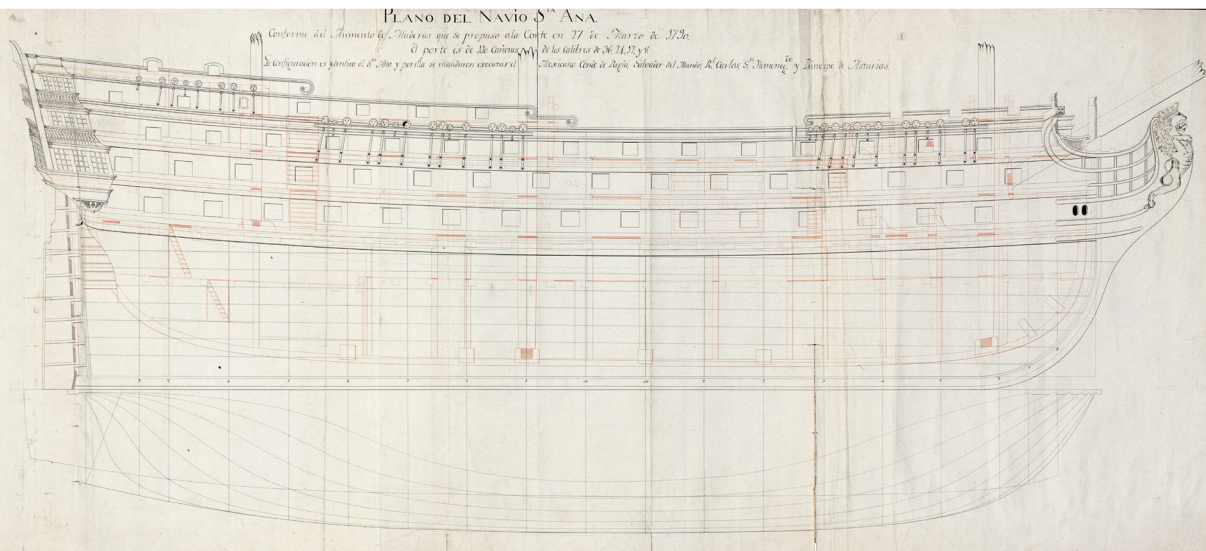 PLANO DEL NAVIO Sta ANA.
Conforme del Aumento de Maderas que se propuso ala Corte en 27 de Marzo de 1790.
El porte es de 120 Cañones, de los Calibres de 36, 24, 12, y 8
Su configuracion es identica al Sta Ana y por ella se mandaron executar el Mexicano Conde de Regla, Salvador del Mundo, Rl Carlos, Sn Hermenegdo y Principe de Asturias.